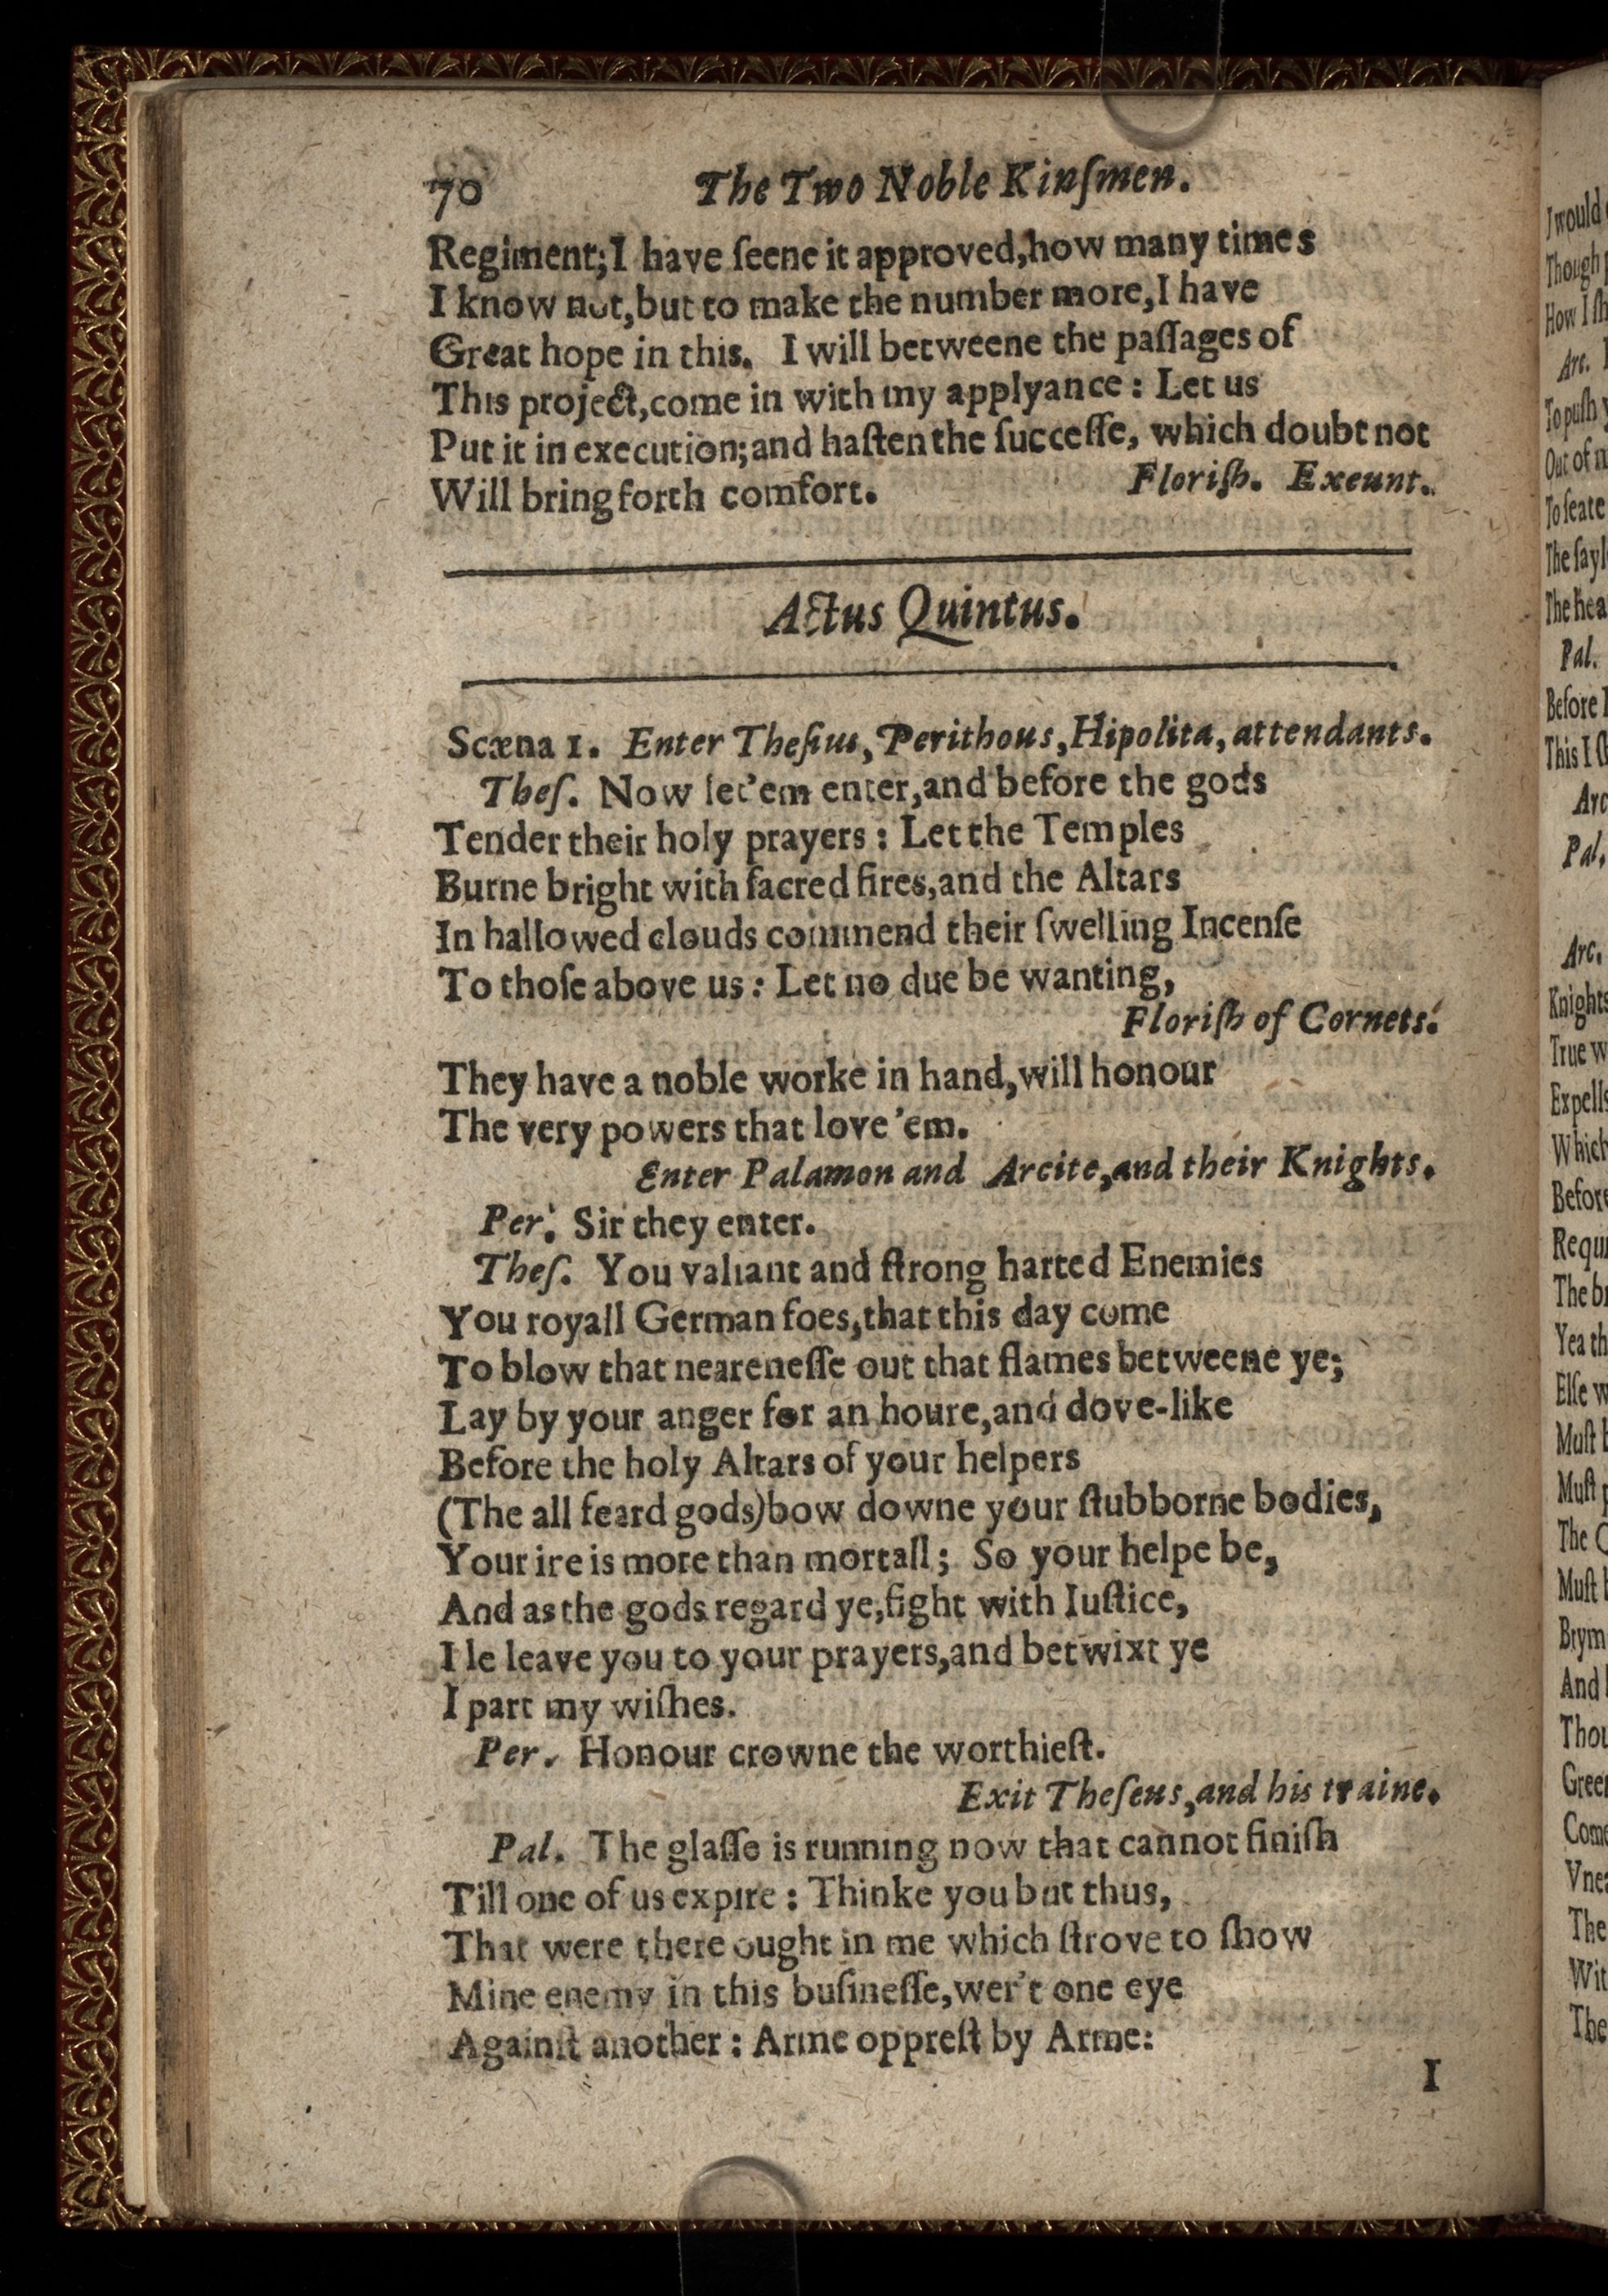 70 The Two Noble Kinſmen.
Regiment; I have ſeene it approved, how many times
I know not, but to make the number more, I have
Great hope in this. I will betweene the paſſages of
This project, come in with my applyance: Let us
Put it in execution; and haſten the ſucceſſe, which doubt not
Will bring forth comfort. Floriſh. Exeunt.
Actus Quintus.
Scæna 1. Enter Theſius, Perithous, Hipolita, attendants.
Theſ. Now let'em enter, and before the gods
Tender their holy prayers: Let the Temples
Burne bright with ſacred fires, and the Altars
In hallowed clouds commend their ſwelling Incenſe
To thoſe above us: Let no due be wanting,
Floriſh of Cornets.
They have a noble worke in hand, will honour
The very powers that love 'em.
Enter Palamon and Arcite, and their Knights.
Per. Sir they enter.
Theſ. You valiant and ſtrong harted Enemies
You royall German foes, that this day come
To blow that neareneſſe out that flames betweene ye;
Lay by your anger for an houre, and dove-like
Before the holy Altars of your helpers
(The all feard gods) bow downe your ſtubborne bodies,
Your ire is more than mortall; So your helpe be,
And as the gods regard ye, fight with Iuſtice,
Ile leave you to your prayers, and betwixt ye
I part my wiſhes.
Per. Honour crowne the worthieſt.
Exit Theſeus, and his traine.
Pal. The glaſſe is running now that cannot finiſh
Till one of us expire: Thinke you but thus,
That were there ought in me which ſtrove to ſhow
Mine enemy in this buſineſſe, wer't one eye
Againſt another: Arme oppreſt by Arme:
I
I would
Though
How I
Arc.
To puſh
Out of
To ſeate
The
The
Pal.
Before
This I
Arc
Pal.
Arc.
Knights
True
Expells
Which
Before
The
Yea
Elſe
Muſt
Muſt
The
Muſt
And
The
The